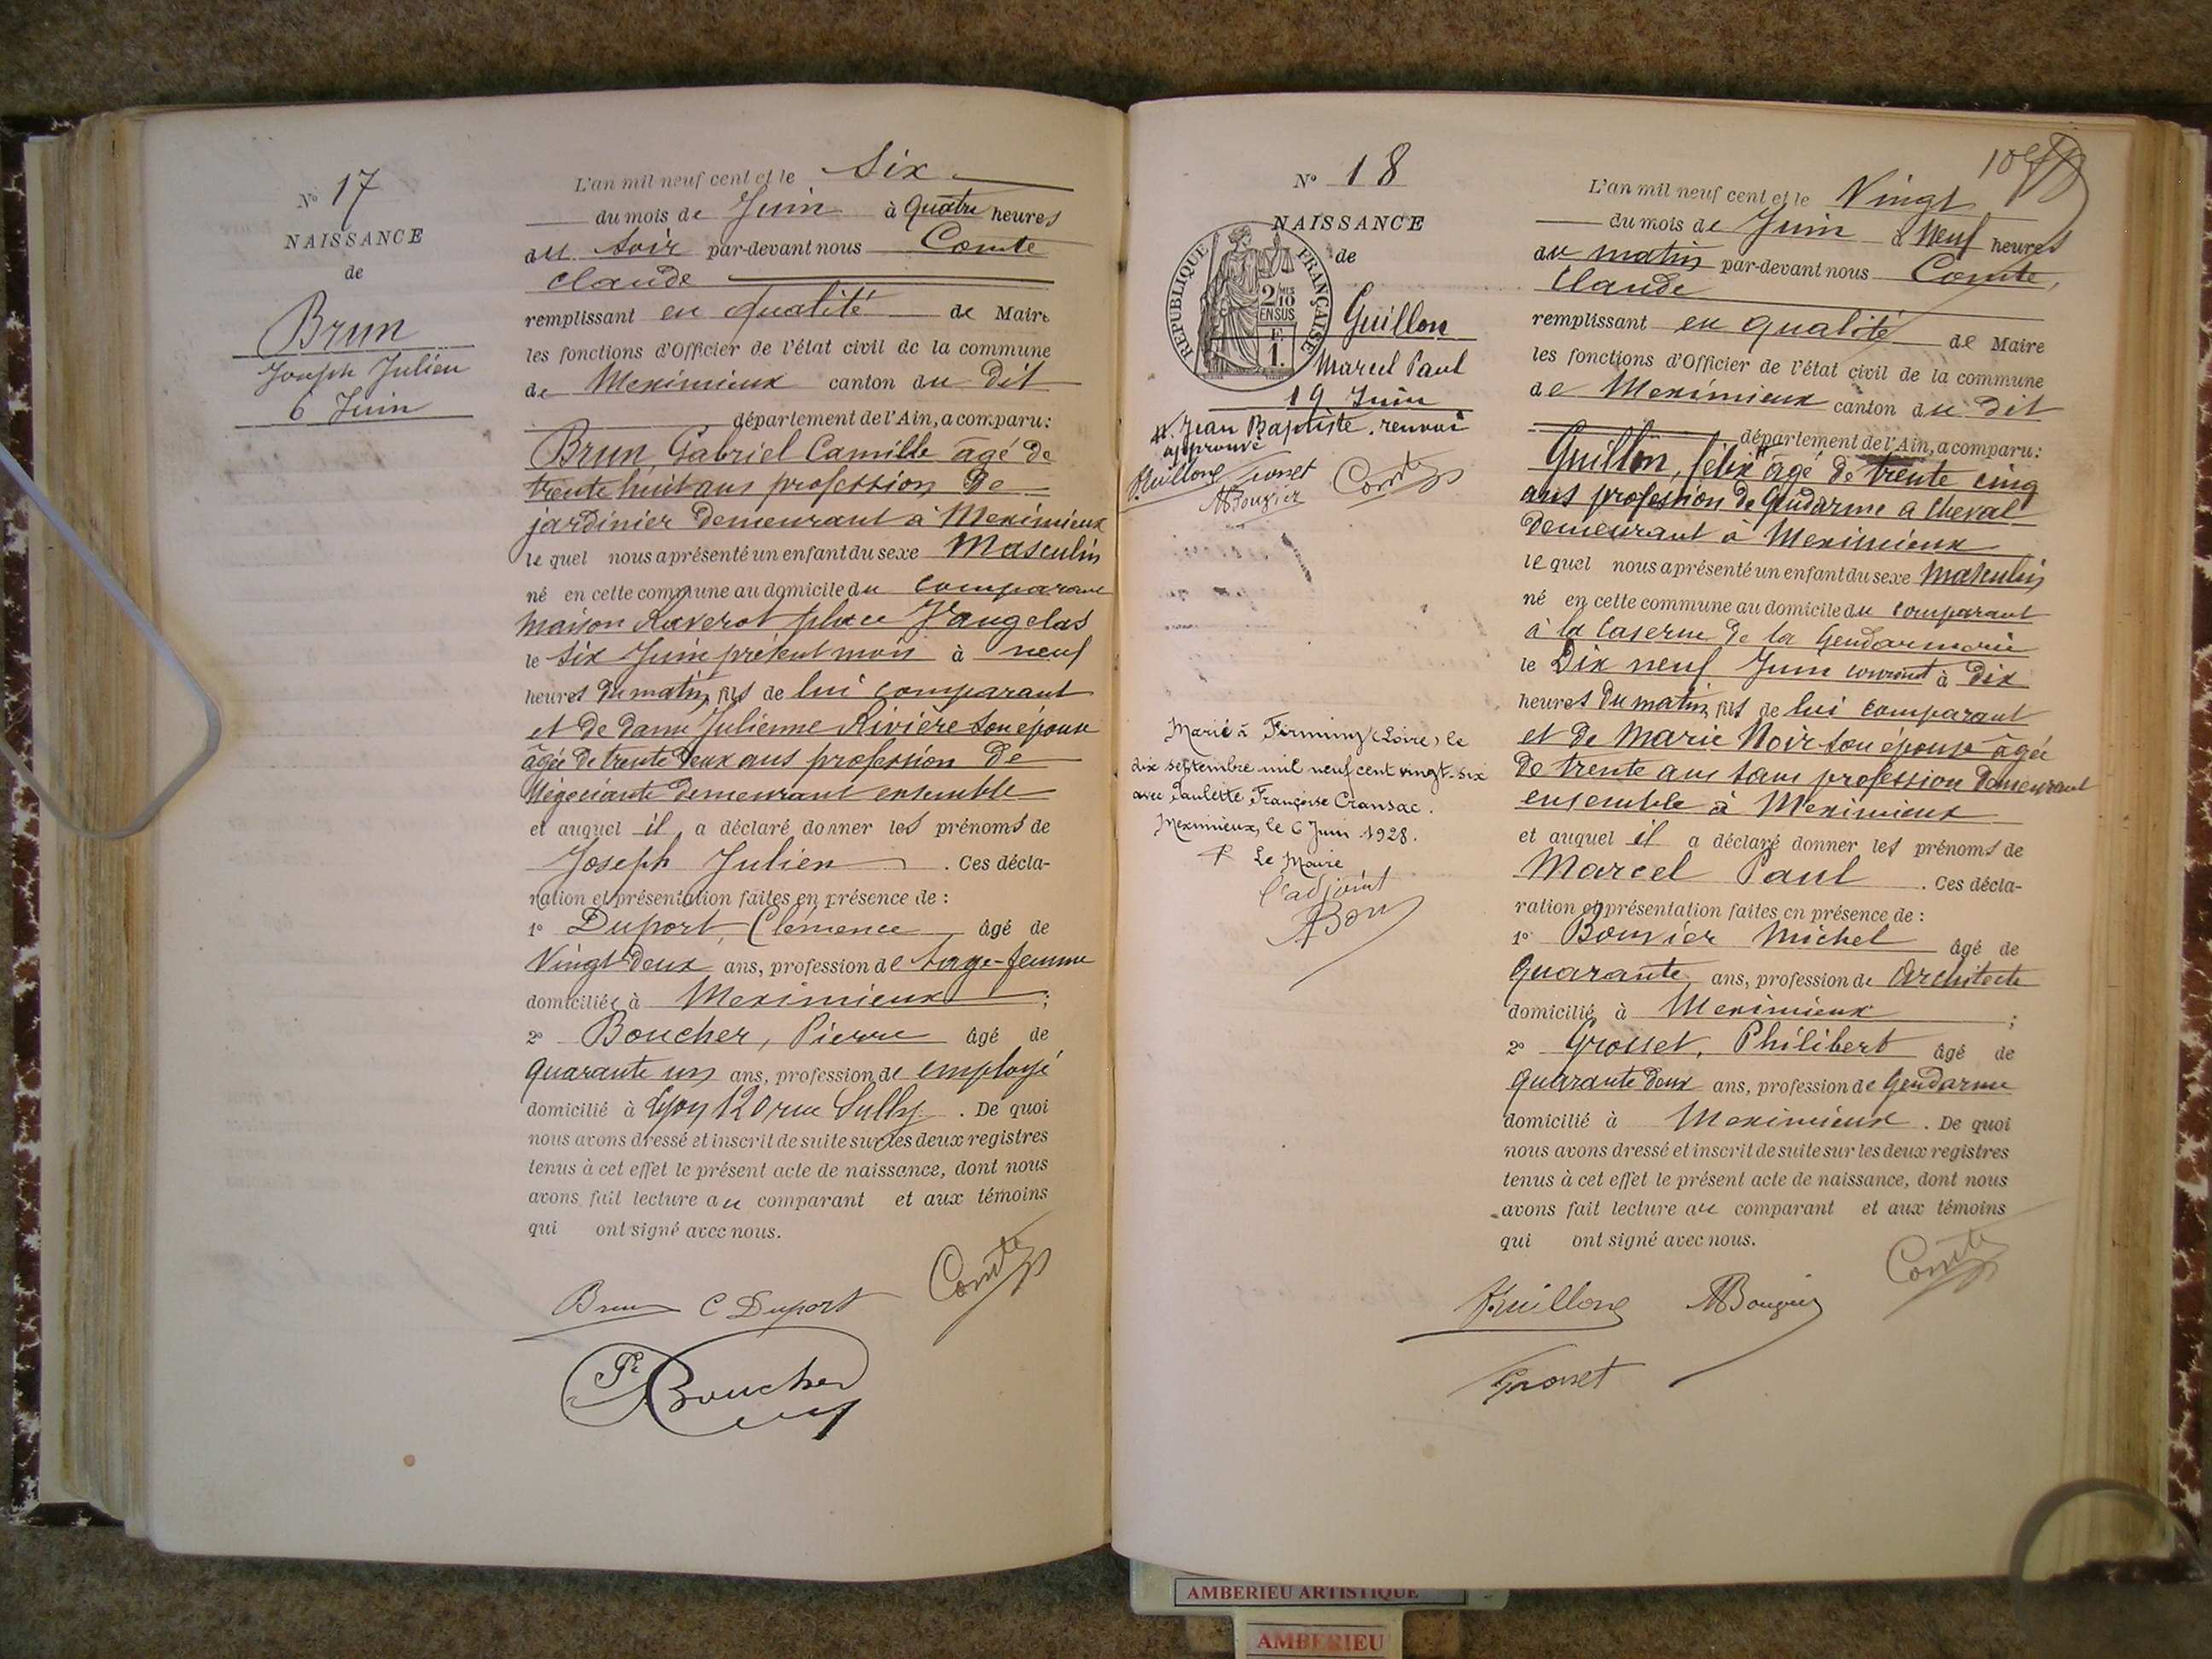 N° 17
NAISSANCE
de
Brun
Joseph Julien
6 Juin
L'an mil neuf cent et le Six
du mois de Juin à quatre heures
du soir par-devant nous Comte
Claude
remplissant en qualité de Maire
les fonctions d'Officier de l'état civil de la commune
de Meximieux canton du dit
département de l'Ain, a comparu:
Brun, Gabriel Camille âgé de
trente huit ans profession de
jardinier demeurant à Meximieux
lequel nous a présenté un enfant du sexe Masculin
né en cette commune au domicile du comparant
maison Raverot place Vaugelas
le six Juin présent mois à neuf
heures du matin, fils de lui comparant
et de dame Julienne Rivière son épouse
âgée de trente deux ans profession de
Négociante demeurant ensemble
et auquel il a déclaré donner les prénoms de
Joseph Julien . Ces décla-
ration et présentation faites en présence de :
1° Duport, Clémence âgé de
Vingt deux ans, profession de sage-femme
domiciliée à Meximieux ;
2° Boucher, Pierre âgé de
quarante un ans, profession de employé
domicilié à Lyon 120 rue Sully . De quoi
nous avons dressé et inscrit de suite sur les deux registres
tenus à cet effet le présent acte de naissance, dont nous
avons fait lecture au comparant et aux témoins
qui ont signé avec nous.
Brun C Duport Comte
Pre Boucher
N° 18
NAISSANCE
de
REPUBLIQUE FRANÇAISE
2/10 EN SUS
F. 1.
Guillon
Marcel Paul
19 Juin
#. Jean Baptiste. renvoi
approuvé
Guillon Grosset
Comte
Marié à Firminy (Loire) le
dix septembre mil neuf cent vingt-six
avec Paulette Françoise Cransac.
Meximieux, le 6 Juin 1928.
P Le Maire
L'adjoint
L'an mil neuf cent et le Vingt
du mois de Juin à Neuf heures
du matin par-devant nous Comte,
Claude
remplissant en qualité de Maire
les fonctions d'Officier de l'état civil de la commune
de Meximieux canton du dit
département de l'Ain, a comparu:
Guillon, félix # âgé de trente cinq
ans profession de Gendarme à Cheval
demeurant à Meximieux
lequel nous a présenté un enfant du sexe Masculin
né en cette commune au domicile du comparant
à la Caserne de la Gendarmerie
le Dix neuf Juin courant à dix
heures du matin, fils de lui comparant
et de Marie Noir son épouse âgée
de trente ans sans profession demeurant
ensemble à Meximieux
et auquel il a déclaré donner les prénoms de
Marcel Paul . Ces décla-
ration et présentation faites en présence de :
1° Bouvier Michel âgé de
Quarante ans, profession de Architecte
domicilié à Meximieux ;
2° Grosset, Philibert âgé de
quarante deux ans, profession de Gendarme
domicilié à Meximieux . De quoi
nous avons dressé et inscrit de suite sur les deux registres
tenus à cet effet le présent acte de naissance, dont nous
avons fait lecture au comparant et aux témoins
qui ont signé avec nous.
Comte
Guillon
Grosset
AMBERIEU ARTISTIQUE
AMBERIEU